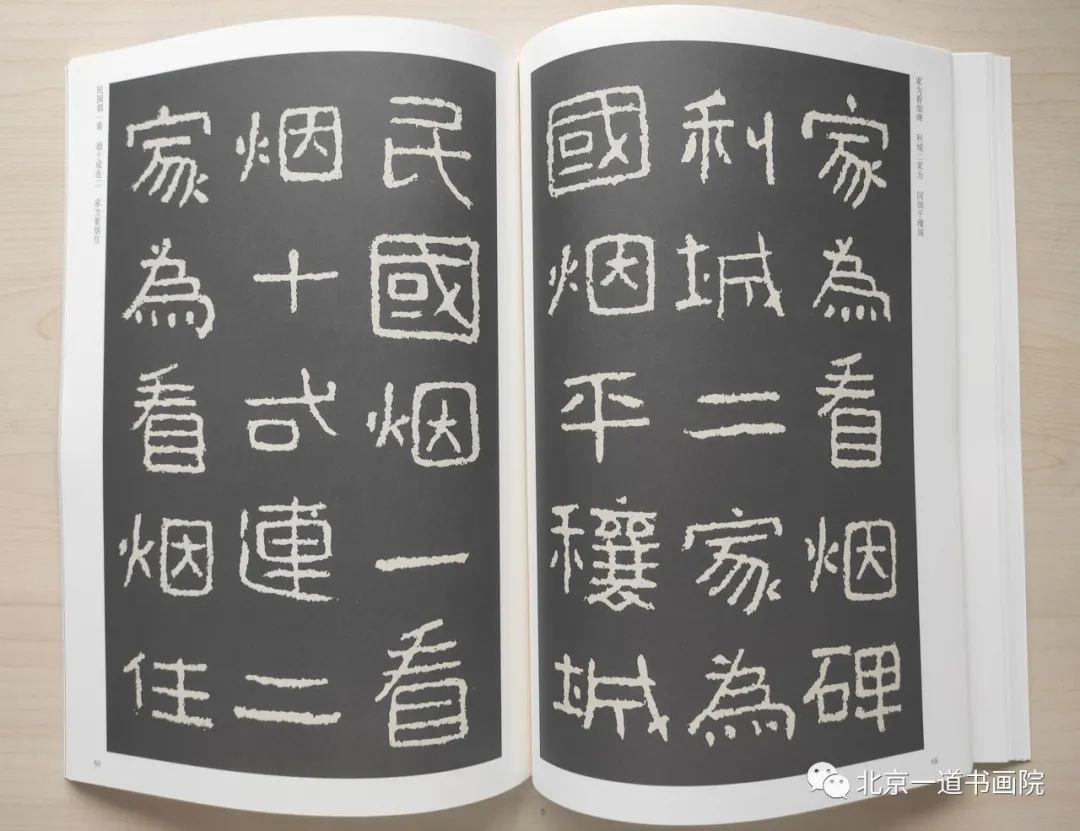 家为看烟碑 利城二家为 国烟平穰城
家為看烟碑
利城二家為
國烟平穰城
68
民國烟一看
烟十連二
家為看烟住
民国烟一看 烟十连二 家为看烟住
69
北京一道书画院